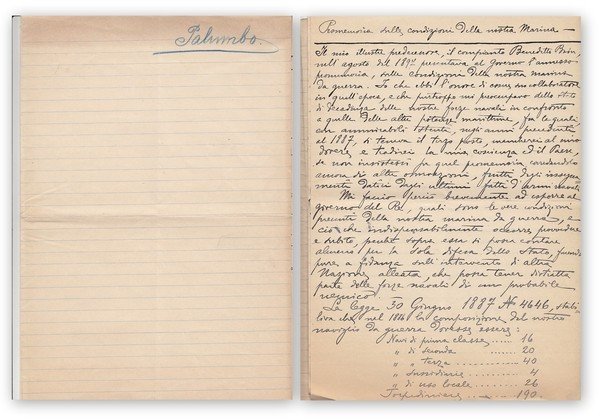 Palumbo.
Promemoria sulle condizioni della nostra Marina
Il mio illustre predecessore, il compianto Benedetto Brin,
nell'agosto del 1897 presentava al Governo l'annesso
promemoria, sulle condizioni della nostra marina
da guerra. Io che ebbi l'onore di essere suo collaboratore
in quell'epoca, e che purtroppo mi preoccupavo dello stato
di decadenza delle nostre forze navali in confronto
a quelle delle altre potenze marittime, fra le quali,
con ammirabile, negli anni precedenti
al 1887, si teneva il terzo posto, mancherei al mio
dovere e tradirei la mia coscienza ed il Paese
se non insistessi su quel promemoria, corredandolo
ancora di altre osservazioni, frutto degli insegna-
menti datici dagli ultimi fatti d'armi navali.
Mi faccio perciò brevemente ad esporre al
governo del Re, quali sono le vere condizioni
presenti della nostra marina da guerra, e
ciò che indispensabilmente occorre, provvedere
e subito, perché sopra essa si possa contare
almeno per la sola difesa dello Stato, facendo
pure, a fidanza sull'intervento di altra
Nazione alleata, che possa tener distratta
parte delle forze navali di un probabile
nemico.
La legge 30 Giugno 1887 No 4646, stabi-
liva che, nel 1896 la composizione del nostro
naviglio da guerra dovesse essere:
Navi di prima classe ...... 16
" di seconda ...... 20
" " terza ...... 40
" sussidiarie ...... 4
" di uso locale ...... 26
Torpediniere ...... 190